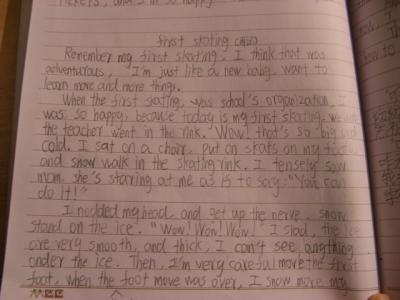 tickets, and I'm so happy
first skating
Remember my first skating, I think that was
adventurous, I'm just like a new baby want to
learn more and more things.
When the first skating, was school's organization, I
was so happy, because today is my first skating. We and
the teacher went in the rink. "Wow! that's so big and
cold. I sat on a chair, put on skats on my foots
and snow walk in the skating rink. I tensely saw
mom, she's staring at me as is to say: "You can
do it!"
I nodded my head, and get up the nerve, snow
stand on the ice. "Wow! Wow! Wow!" I siad, the ice
are very smooth, and thick, I can't see anything
onder the ice. Then, I'm very careful move the first
foot, when the foot move was over, I snow move my
MEE